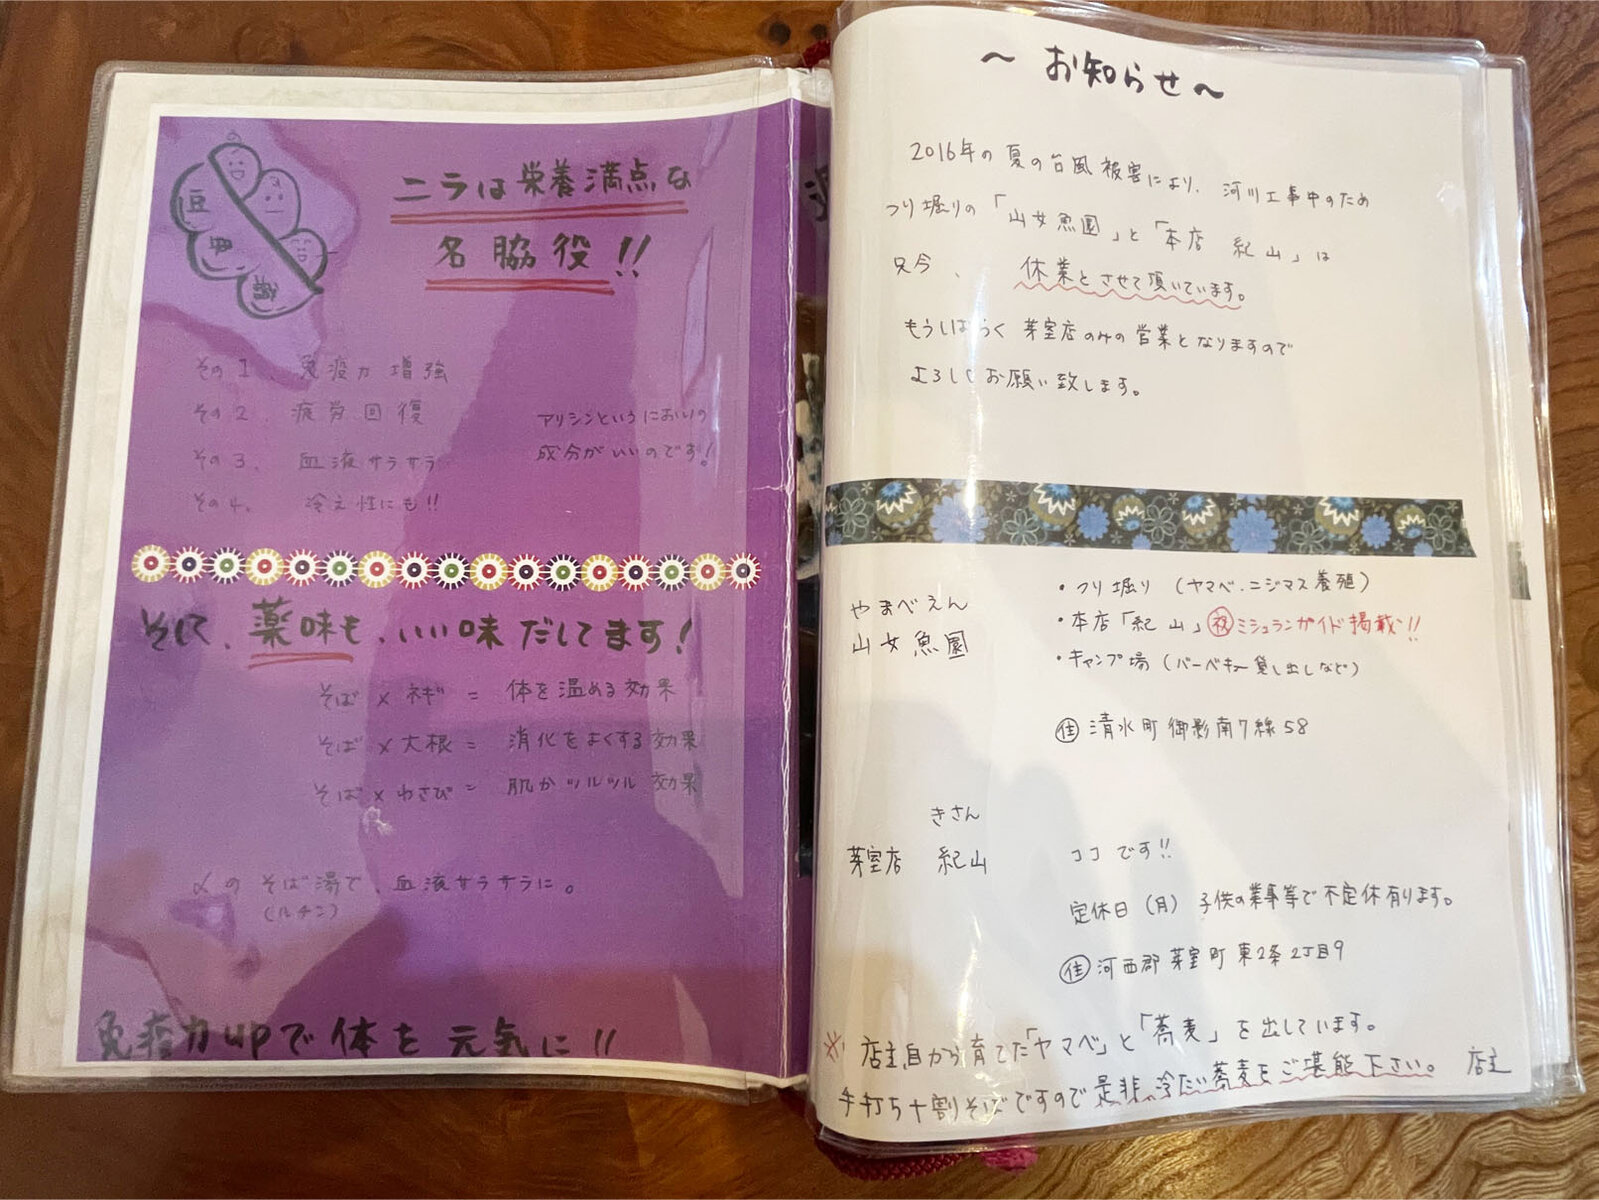 豆知識
ニラは栄養満点な
名脇役!!
その1、免疫力増強
その2、疲労回復
その3、血液サラサラ
その4、冷え性にも!!
アリシンというにおいの
成分がいいのです!
そして、薬味も、いい味だしてます!
そば×ネギ=体を温める効果
そば×大根=消化をよくする効果
そば×わさび=肌がツルツル効果
〆のそば湯で、血液サラサラに。
(ルチン)
免疫力upで体を元気に!!
〜お知らせ〜
2016年の夏の台風被害により、河川工事中のため
つり堀りの「山女魚園」と「本店 紀山」は
只今、 休業とさせて頂いています。
もうしばらく芽室店のみの営業となりますので
よろしくお願い致します。
やまべえん
山女魚園
・つり堀り(ヤマベ・ニジマス養殖)
・本店「紀山」㊗ミシュランガイド掲載!!
・キャンプ場(バーベキュー貸し出しなど)
住 清水町御影南7線58
きさん
芽室店 紀山 ココです!!
定休日(月)子供の業事等で不定休有ります。
住 河西郡芽室町東2条2丁目9
※店主自から育てた「ヤマベ」と「蕎麦」を出しています。
手打ち十割そばですので是非、冷たい蕎麦をご堪能下さい。 店主